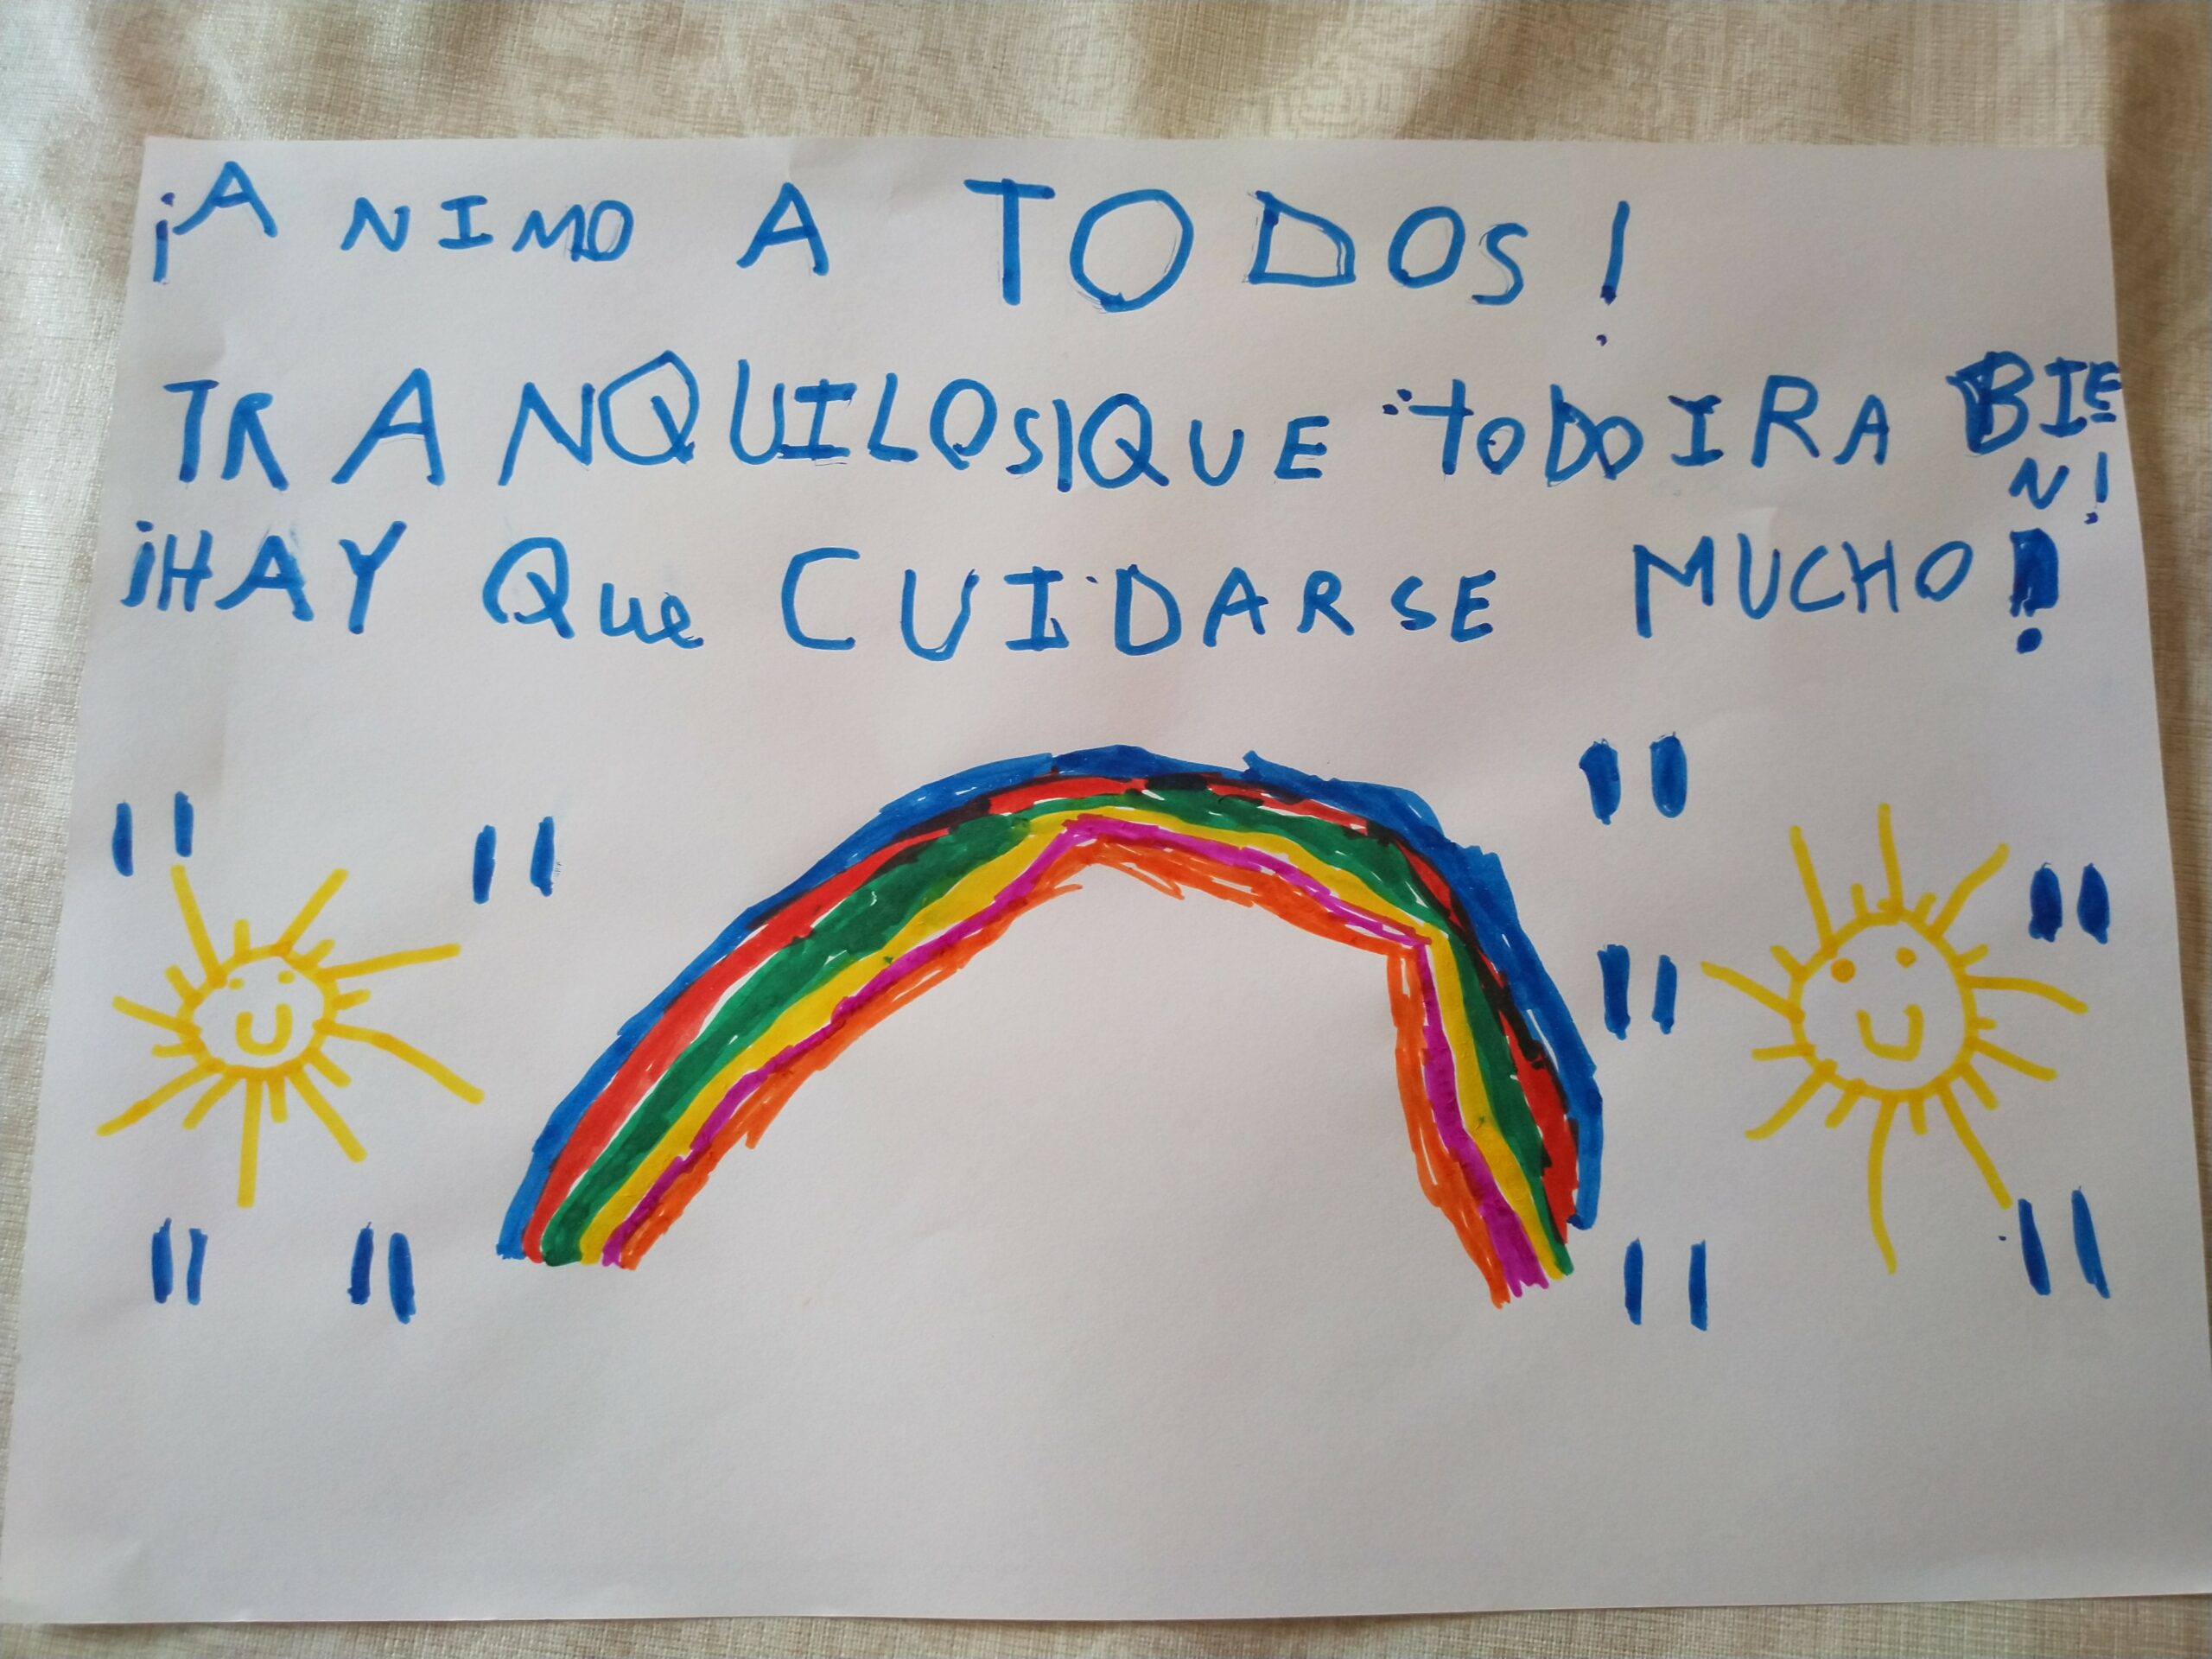 ¡ANIMO A TODOS!
TRANQUILOS¡QUE TODO IRA BIE
N!
¡HAY Que CUIDARSE MUCHO!